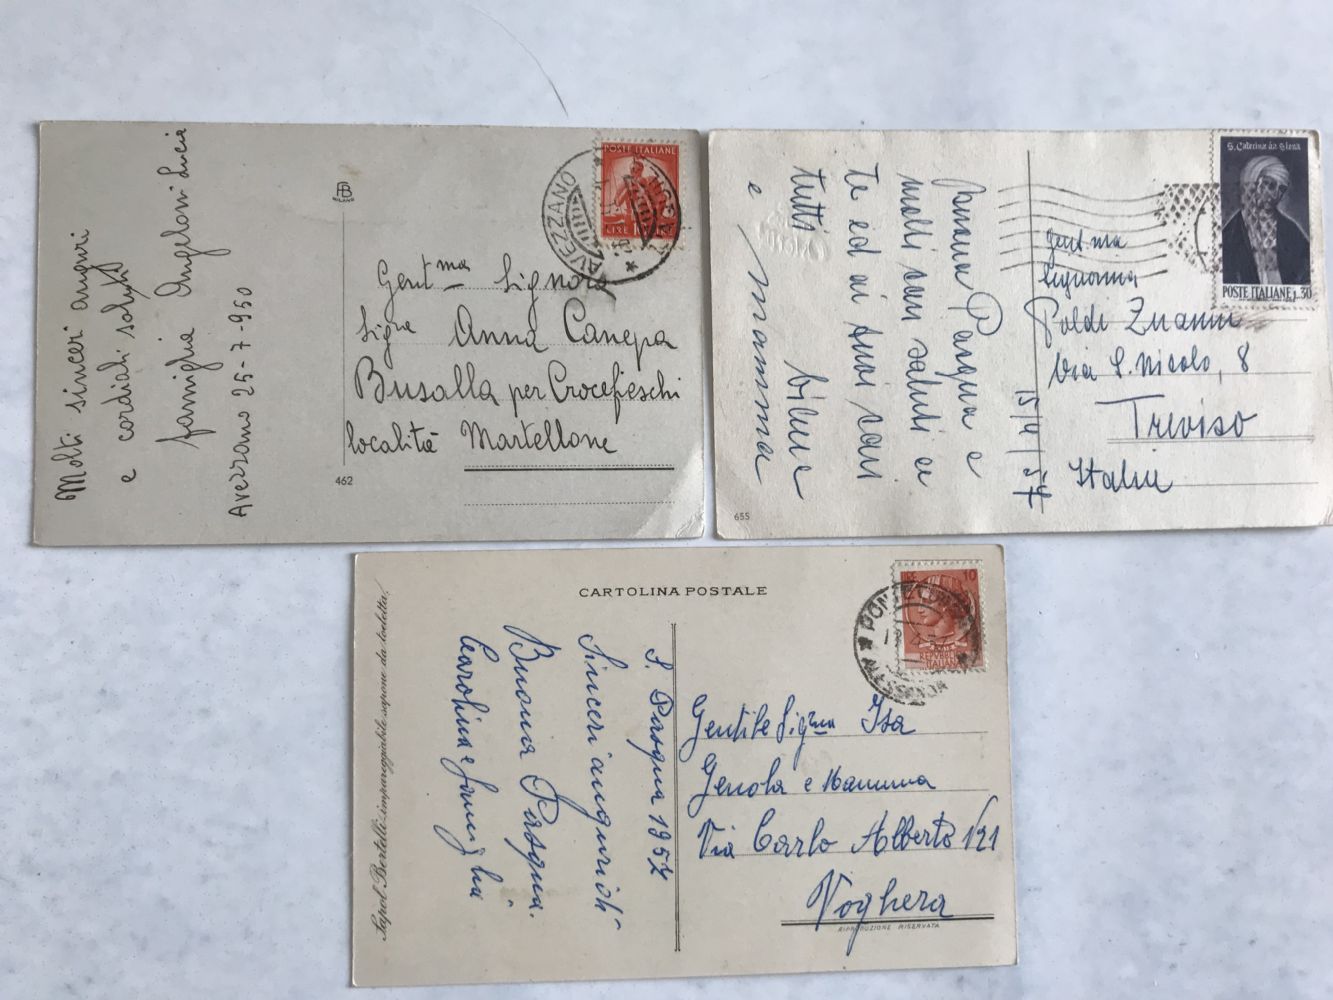 Molti sinceri auguri
e cordiali saluti
famiglia Angeloni Lucia
Avezzano 25-7-950
AB
MILANO
462
POSTE ITALIANE
LIRE
AVEZZANO
Gent.ma Signora
Sig.ra Anna Canepa
Busalla per Crocefieschi
località Martellone
Buona Pasqua e
molti cari saluti a
te ed ai tuoi cari
tutti
e mamma
15/4/57
655
S. Caterina da Siena
POSTE ITALIANE L.30
Gent.ma
Signorina
Poldi
Via S. Nicolo, 8
Treviso
Italia
CARTOLINA POSTALE
Sapol Bertelli-impareggiabile sapone da toeletta!
S. Pasqua 1957
Sinceri auguri di
Buona Pasqua.
Carolina e famiglia
10
REPUBBLICA
ITALIANA
ALESSANDRIA
Gentile Sig.rina Isa
Genola e Mamma
Via Carlo Alberto 121
Voghera
RIPRODUZIONE RISERVATA